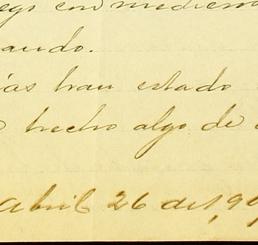 con medicin
ando.
ías han estado
hecho algo de
Abril 26 de 1,99